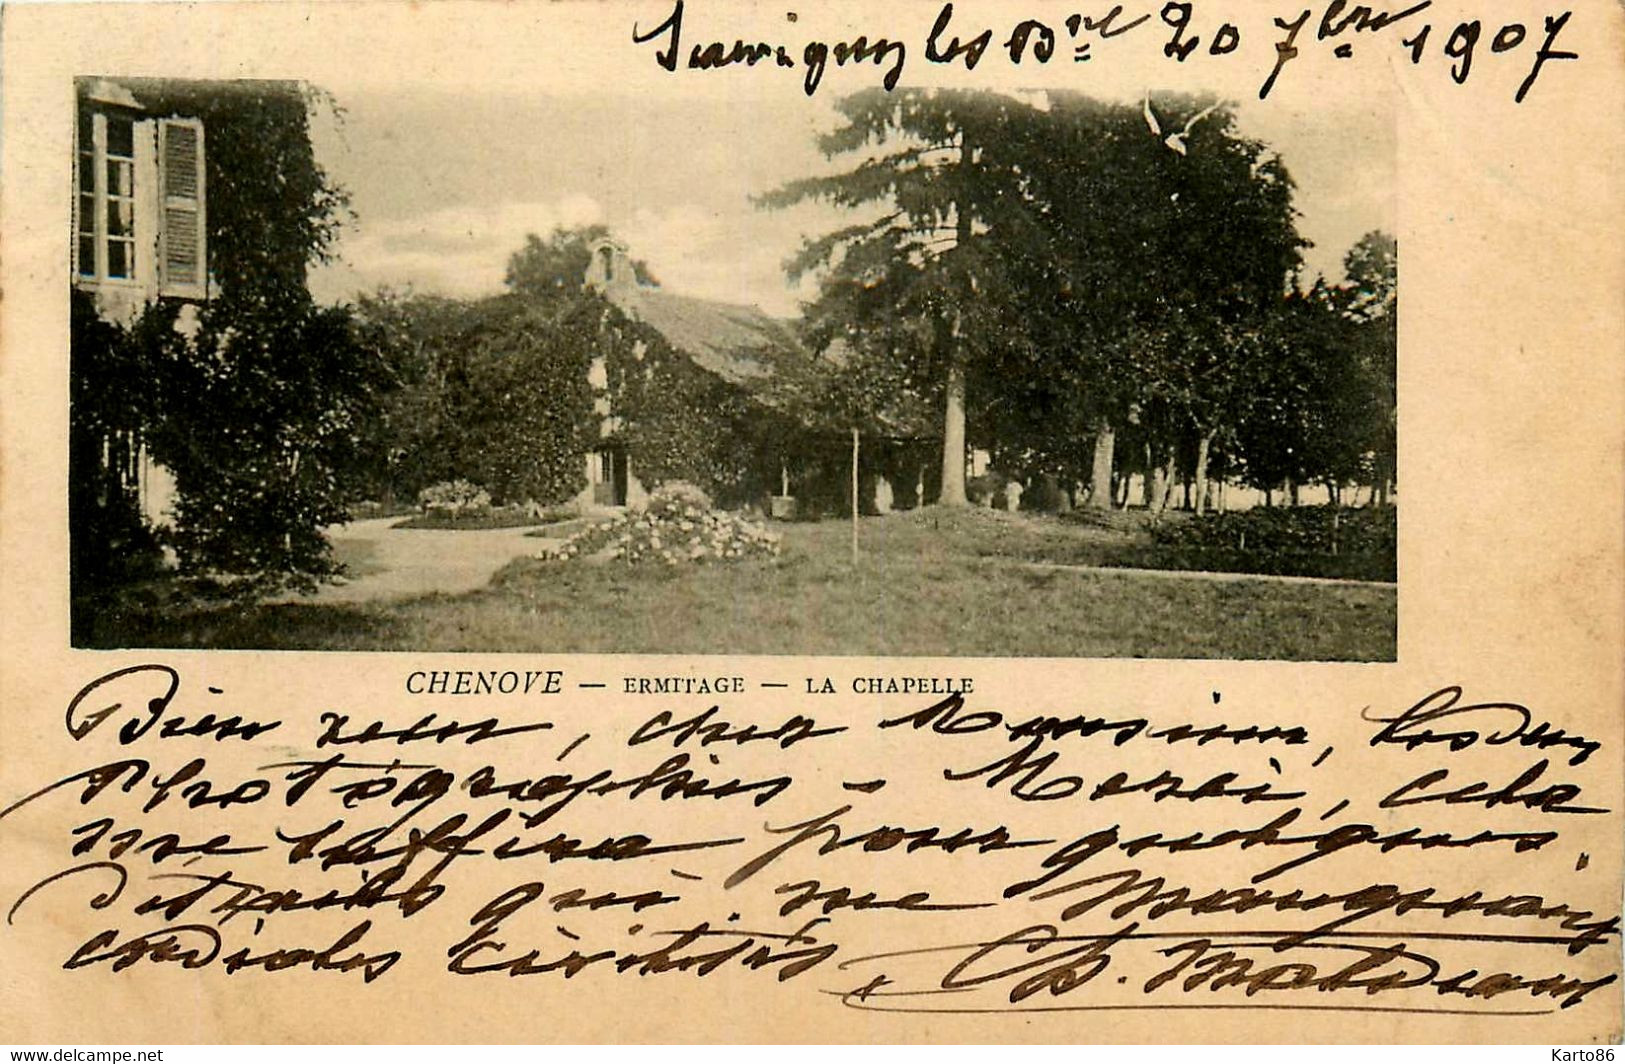 Sauvigny les B^ne 20 7bre 1907
CHENOVE — ERMITAGE — LA CHAPELLE
Bien reçu, cher Monsieur, les deux
Photographies - Merci, cela
me suffira pour quelques
Détails qui me manquaient
cordiales civilités
Ch.
Karto86
www.delcampe.net